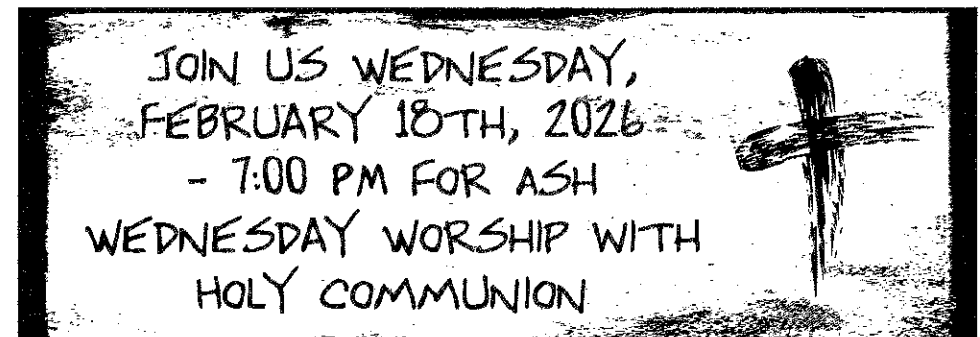 JOIN US WEDNESDAY,
FEBRUARY 18TH, 2026
- 7:00 PM FOR ASH
WEDNESDAY WORSHIP WITH
HOLY COMMUNION